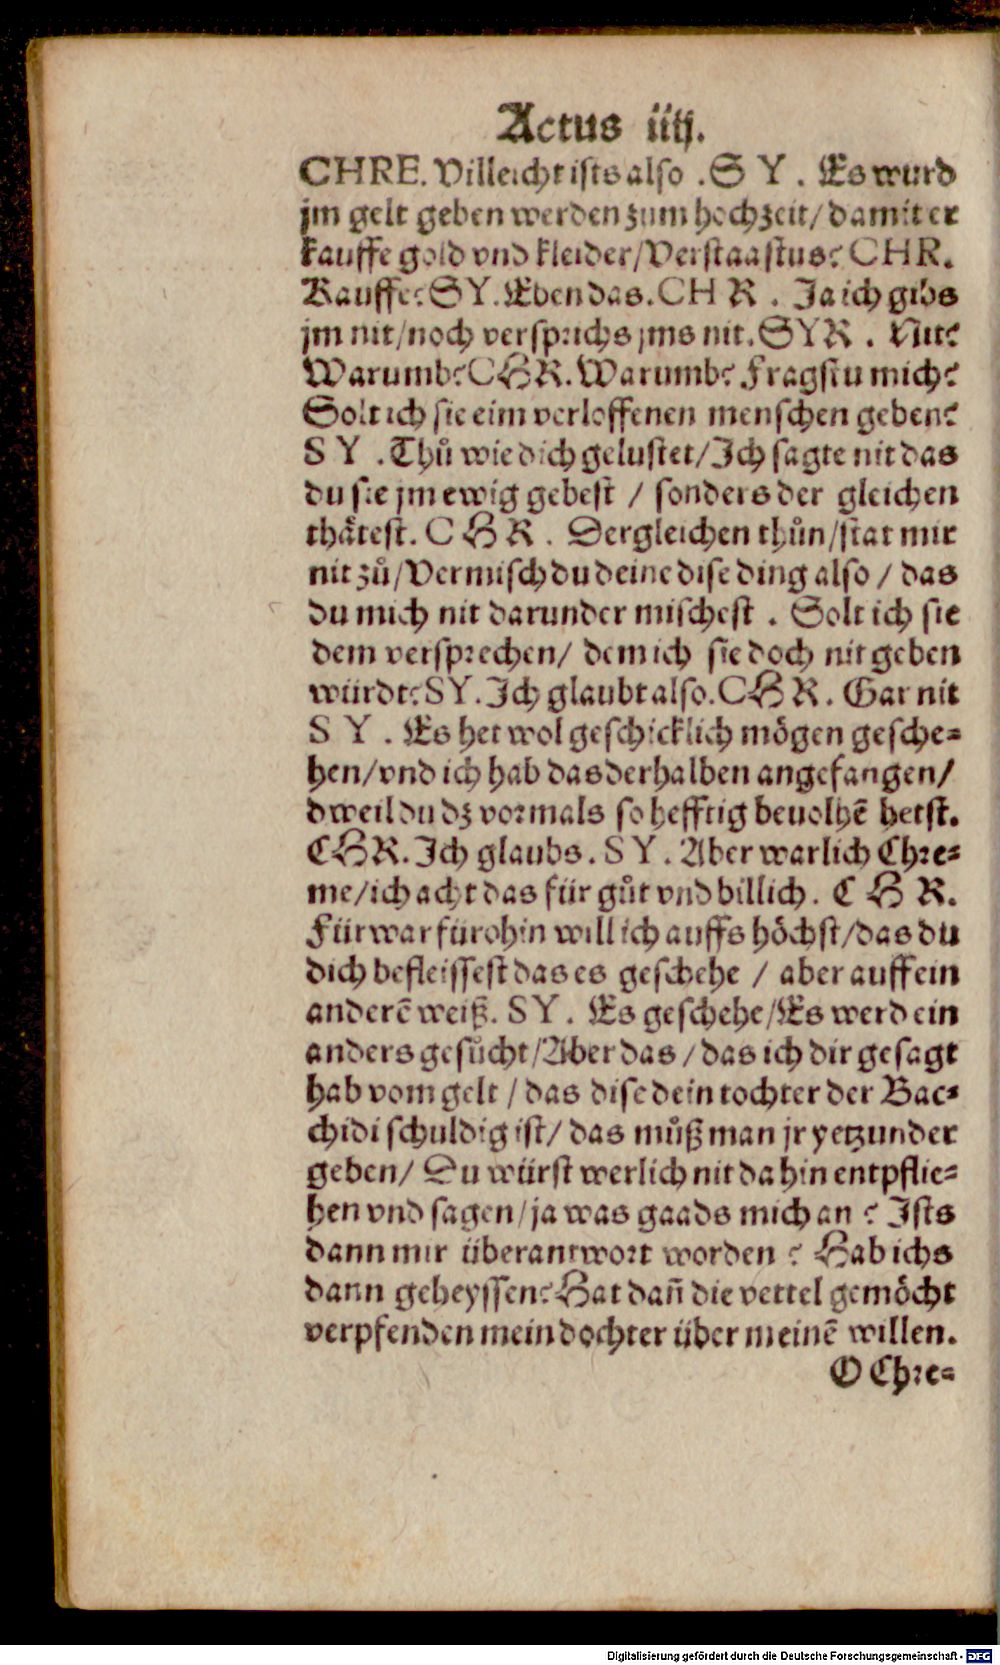 Actus iiij.
CHRE. Villeicht ists also . S Y . Es wurd
jm gelt geben werden zum hochzeit/ damit er
kauffe gold vnd kleider/Verstaastus? CHR.
Kauffe? SY. Eben das. CH R . Ja ich gibs
jm nit/noch versprichs jms nit. SYR . Nit?
Warumb? CHR. Warumb? Fragstu mich?
Solt ich sie eim verloffenen menschen geben?
S Y . Thů wie dich gelustet/Ich sagte nit das
du sie jm ewig gebest / sonders der gleichen
thåtest. C H R . Dergleichen thůn/stat mir
nit zů/Vermisch du deine dise ding also / das
du mich nit darunder mischest . Solt ich sie
dem versprechen/ dem ich sie doch nit geben
würdt? SY. Ich glaubt also. CHR. Gar nit
S Y . Es het wol geschicklich mögen gesche-
hen/vnd ich hab das derhalben angefangen/
dweil du dz vormals so hefftig beuolhē hetst.
CHR. Ich glaubs. S Y . Aber warlich Chre-
me/ich acht das für gůt vnd billich. C H R.
Fürwar fürohin will ich auffs höchst/das du
dich befleissest das es geschehe / aber auff ein
anderē weiß. S Y . Es geschehe/Es werd ein
anders gesůcht/Aber das / das ich dir gesagt
hab vom gelt / das dise dein tochter der Bac-
chidi schuldig ist/ das můß man jr yetzunder
geben/ Du würst werlich nit da hin entpflie-
hen vnd sagen/ja was gaads mich an ? Ists
dann mir überantwort worden ? Hab ichs
dann geheyssen? Hat dañ die vettel gemöcht
verpfenden mein dochter über meinē willen.
O Chre-
Digitalisierung gefördert durch die Deutsche Forschungsgemeinschaft - DFG